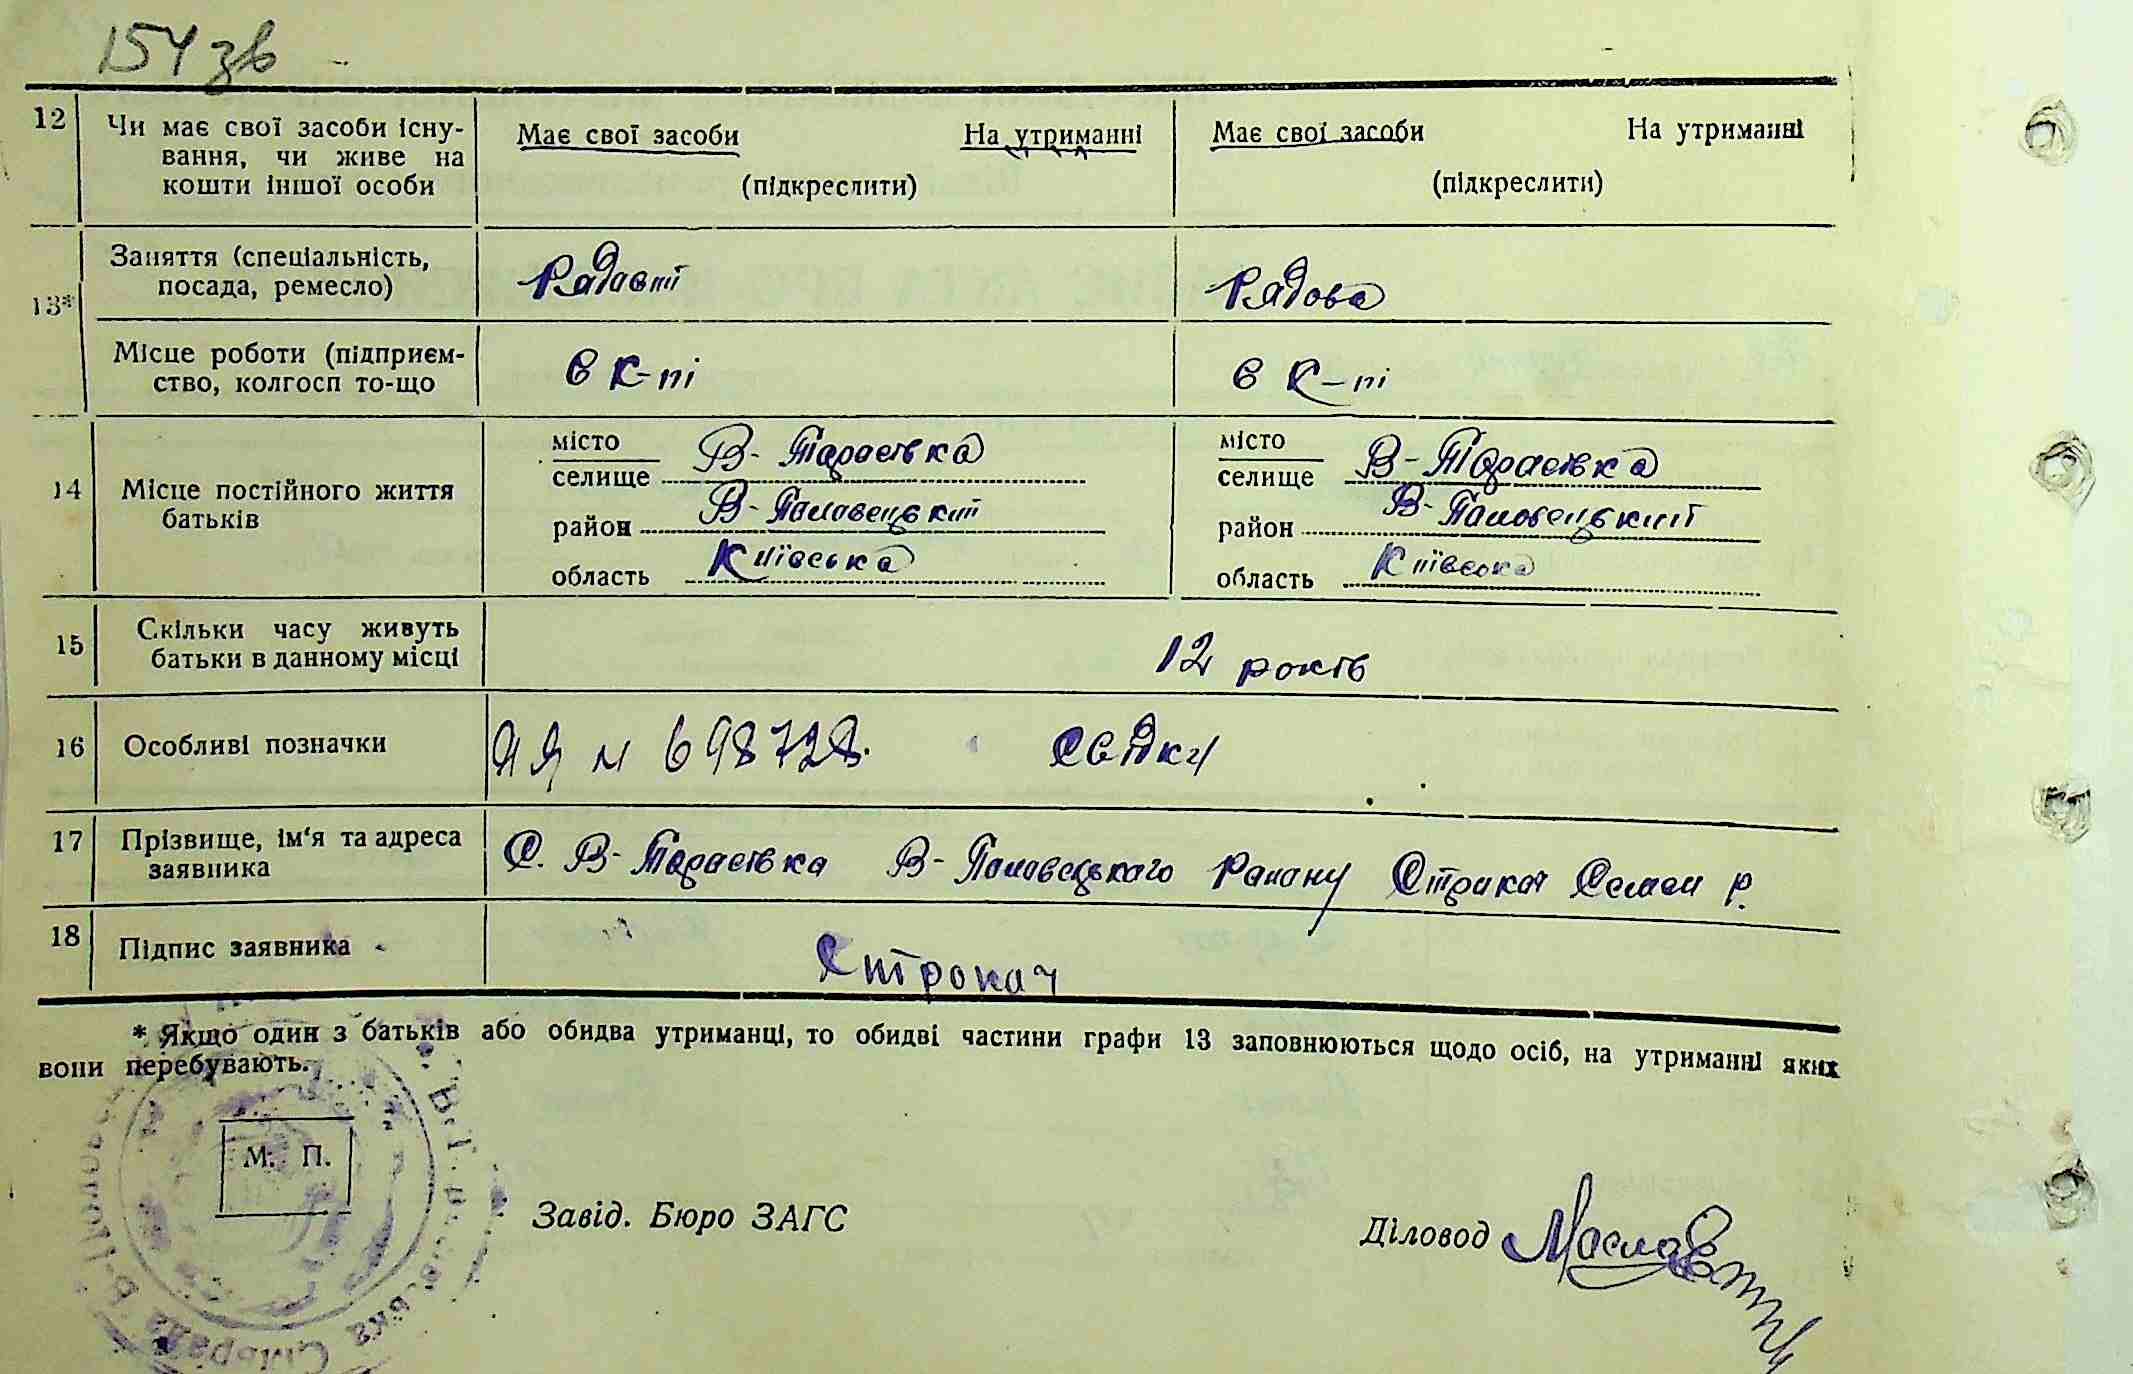 154 зв
12 Чи має свої засоби існу- Має свої засоби На утриманні Має свої засоби На утриманні
вання, чи живе на
кошти іншої особи (підкреслити) (підкреслити)
13* Заняття (спеціальність, Рядовий Рядова
посада, ремесло)
Місце роботи (підприєм- в к-пі в к-пі
ство, колгосп то-що
14 Місце постійного життя
батьків
місто
селище В-Тарасівка
район В-Паловецький
область Київська
місто
селище В-Тарасівка
район В-Половецький
область Київська
15 Скільки часу живуть 12 років
батьки в данному місці
16 Особливі позначки ЯЯ N 698728.
17 Прізвище, ім'я та адреса С. В-Тарасівка В-Паловецького Району Стрикач Семен Р.
заявника
18 Підпис заявника Строкач
* Якщо один з батьків або обидва утриманці, то обидві частини графи 13 заповнюються щодо осіб, на утриманні яких
вони перебувають.
М. П.
Завід. Бюро ЗАГС Діловод
Сільрада